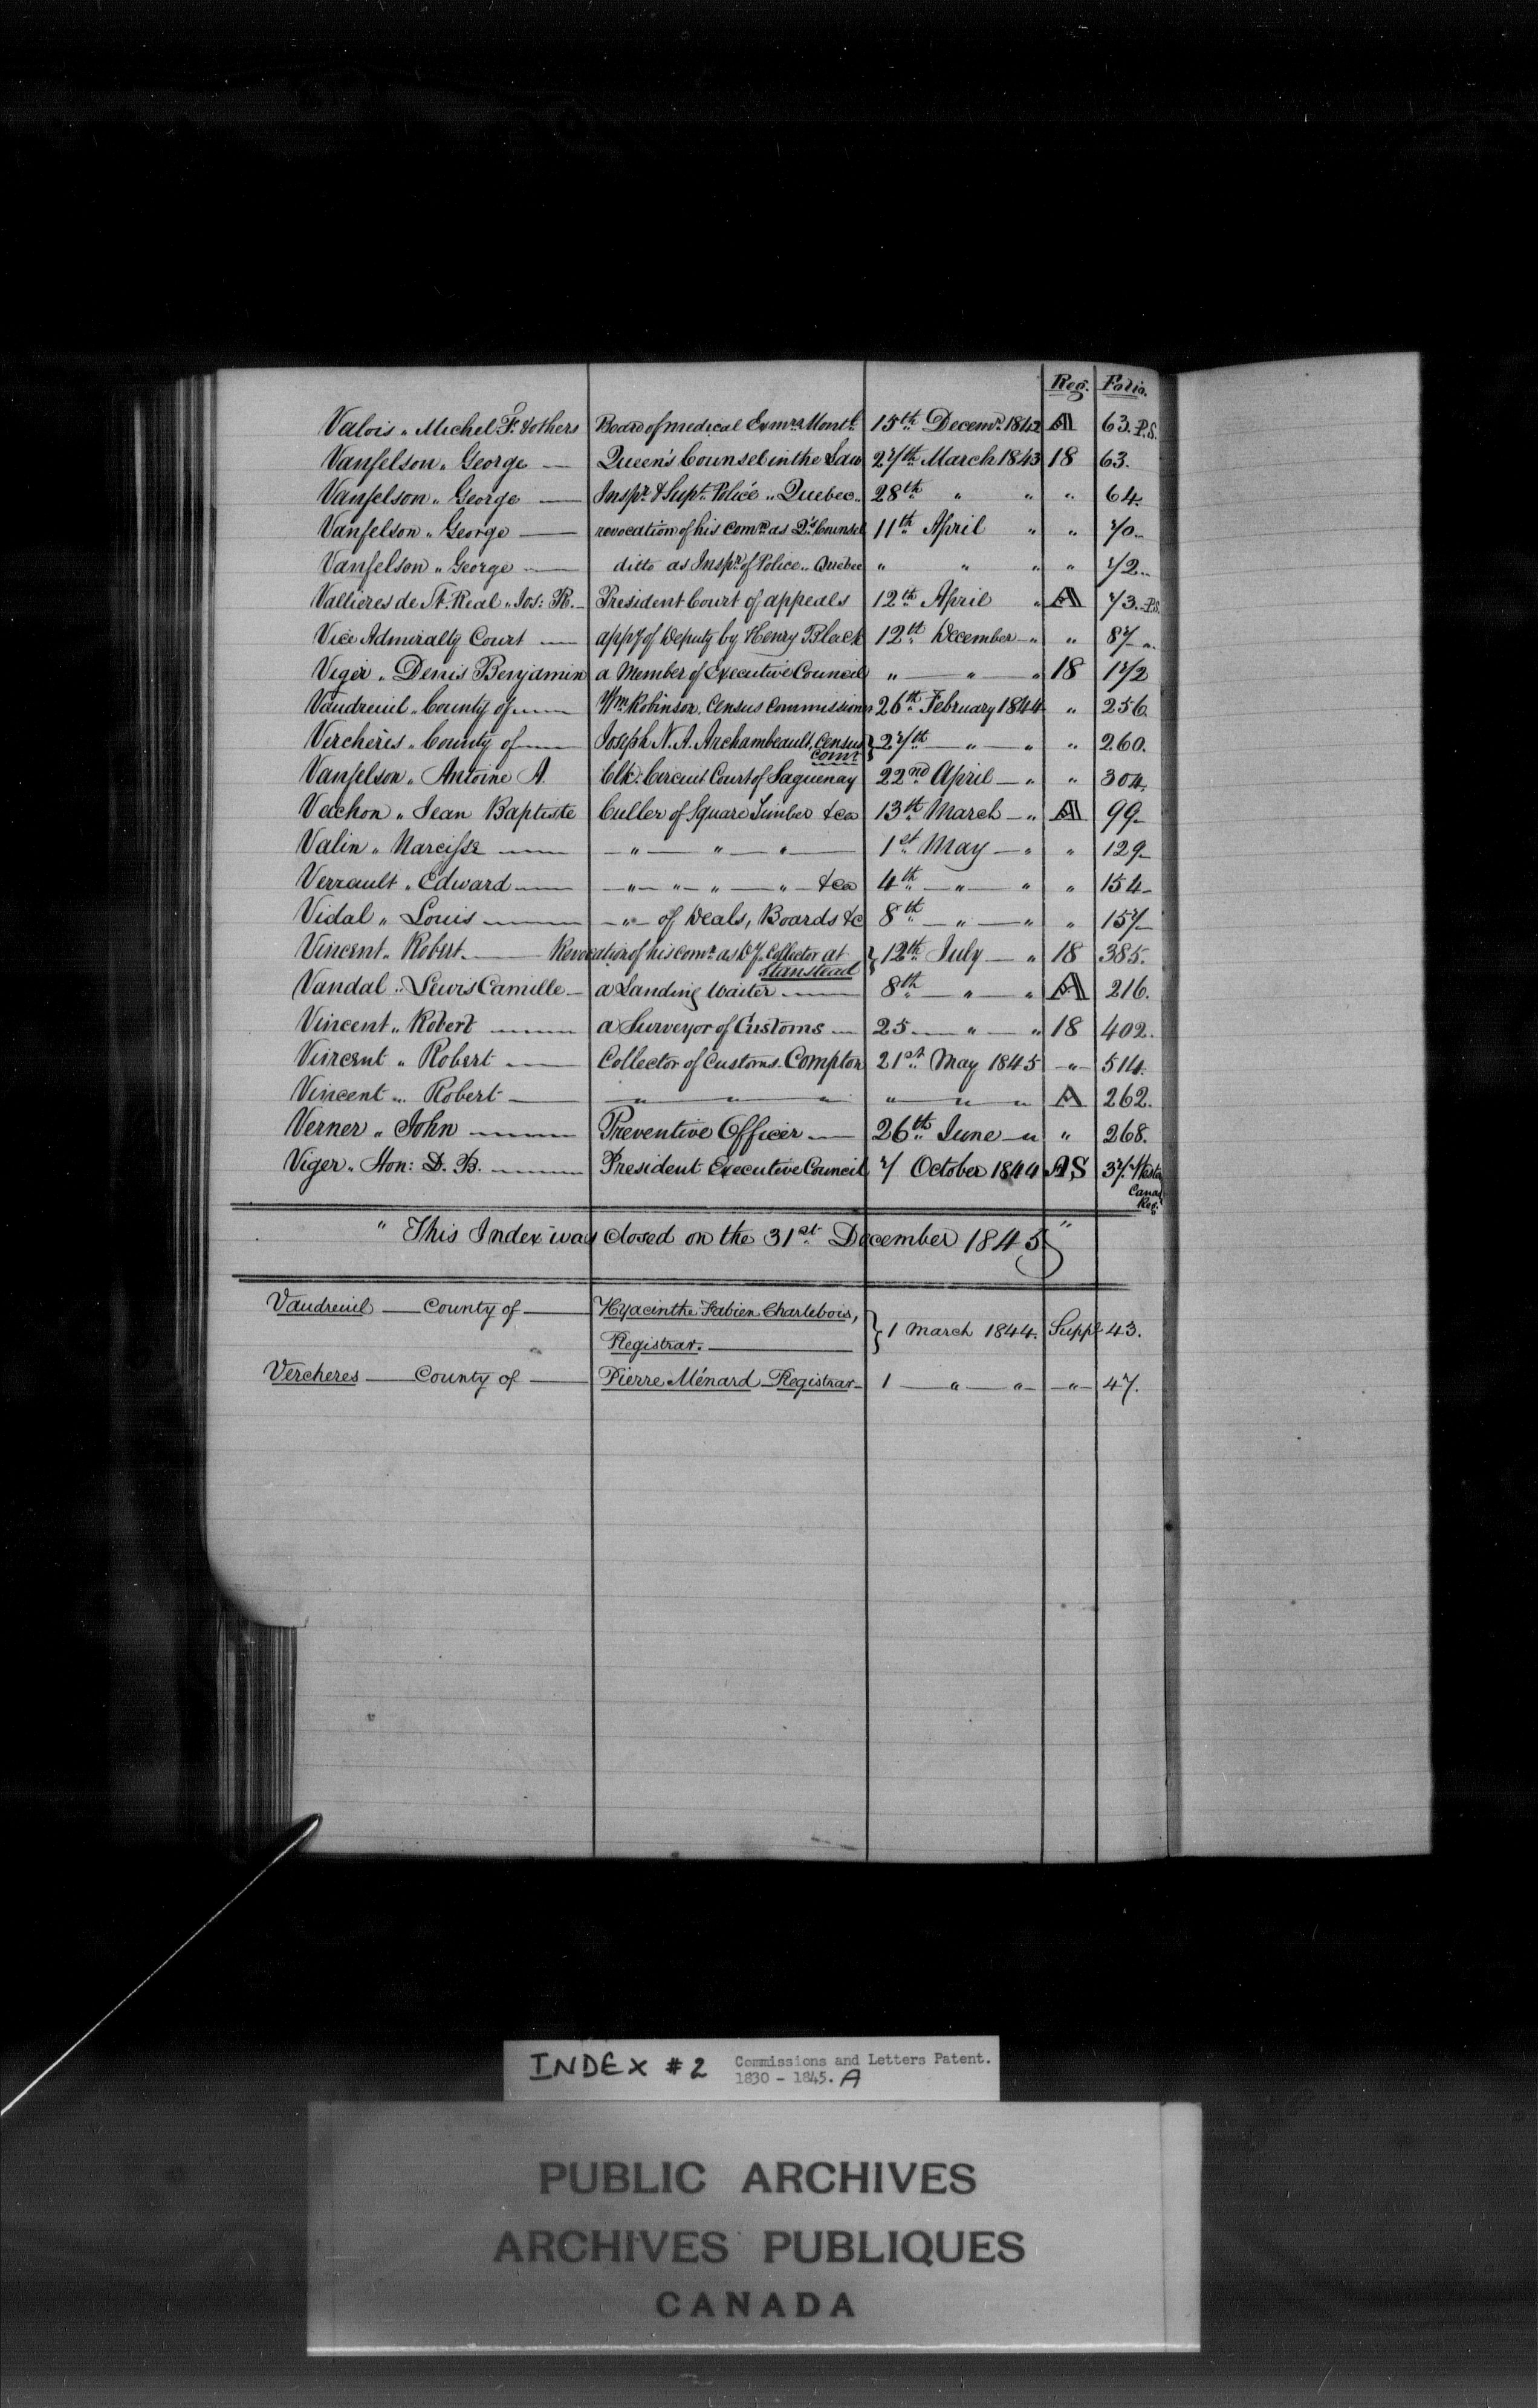 Reg. Folio.
Valois „ Michel F. & others Board of medical Exmrs Montl 15th Decemr 1842 A 63. P.S.
Vanfelson „ George — Queen's Counsel in the Law 27th March 1843 18 63.
Vanfelson „ George — Inspr & Supt Police „ Quebec „ 28th „ „ „ 64.
Vanfelson „ George — revocation of his comn as Q's Counsel 11th April „ „ 70.
Vanfelson „ George — ditto as Inspr of Police „ Quebec „ „ „ „ 72.
Vallières de St. Real „ Jos: R. — President Court of appeals 12th April „ A 73. P.S.
Vice Admiralty Court — app't of Deputy by Henry Black 12th December — „ „ 87 „
Viger „ Denis Benjamin a Member of Executive Council „ — „ — „ 18 172
Vaudreuil „ County of — Wm Robinson, Census Commissioner 26th February 1844 „ 256
Verchères „ County of — Joseph N. A. Archambeault, Census } 27th — „ — „ „ 260.
Comr
Vanfelson „ Antoine A. Clk: Circuit Court of Saguenay 22nd April — „ „ 304.
Vachon „ Jean Baptiste Culler of Square Timber &ca 13th March — „ A 99
Valin „ Narcisse — „ — „ — „ — 1st May — „ „ 129
Verrault „ Edward — „ — „ — „ — „ — &ca 4th — „ — „ „ 154
Vidal „ Louis — „ — of Deals, Boards &c 8th — „ — „ „ 157
Vincent „ Robert — Revocation of his comn as Dy. Collector at } 12th July — „ 18 385.
Stanstead
Vandal „ Lewis Camille — a Landing Waiter — 8th — „ — „ A 216.
Vincent „ Robert — a Surveyor of Customs — 25 — „ — „ 18 402.
Vincent „ Robert — Collector of Customs. Compton 21st May 1845 — „ — 514.
Vincent „ Robert — „ — „ — „ „ „ „ A 262.
Verner „ John — Preventive Officer — 26th June — „ „ 268.
Viger „ Hon: D. B. — President Executive Council 7 October 1844 AS 37. Westn
Canada
Reg.
" This Index was closed on the 31st December 1845 "
Vaudreuil — County of — Hyacinthe Fabien Charlebois, } 1 March 1844. Suppt 43.
Registrar. —
Vercheres — County of — Pierre Ménard — Registrar — 1 — „ — „ — „ — 47.
INDEX # 2 Commissions and Letters Patent.
1830 - 1845. A
PUBLIC ARCHIVES
ARCHIVES PUBLIQUES
CANADA